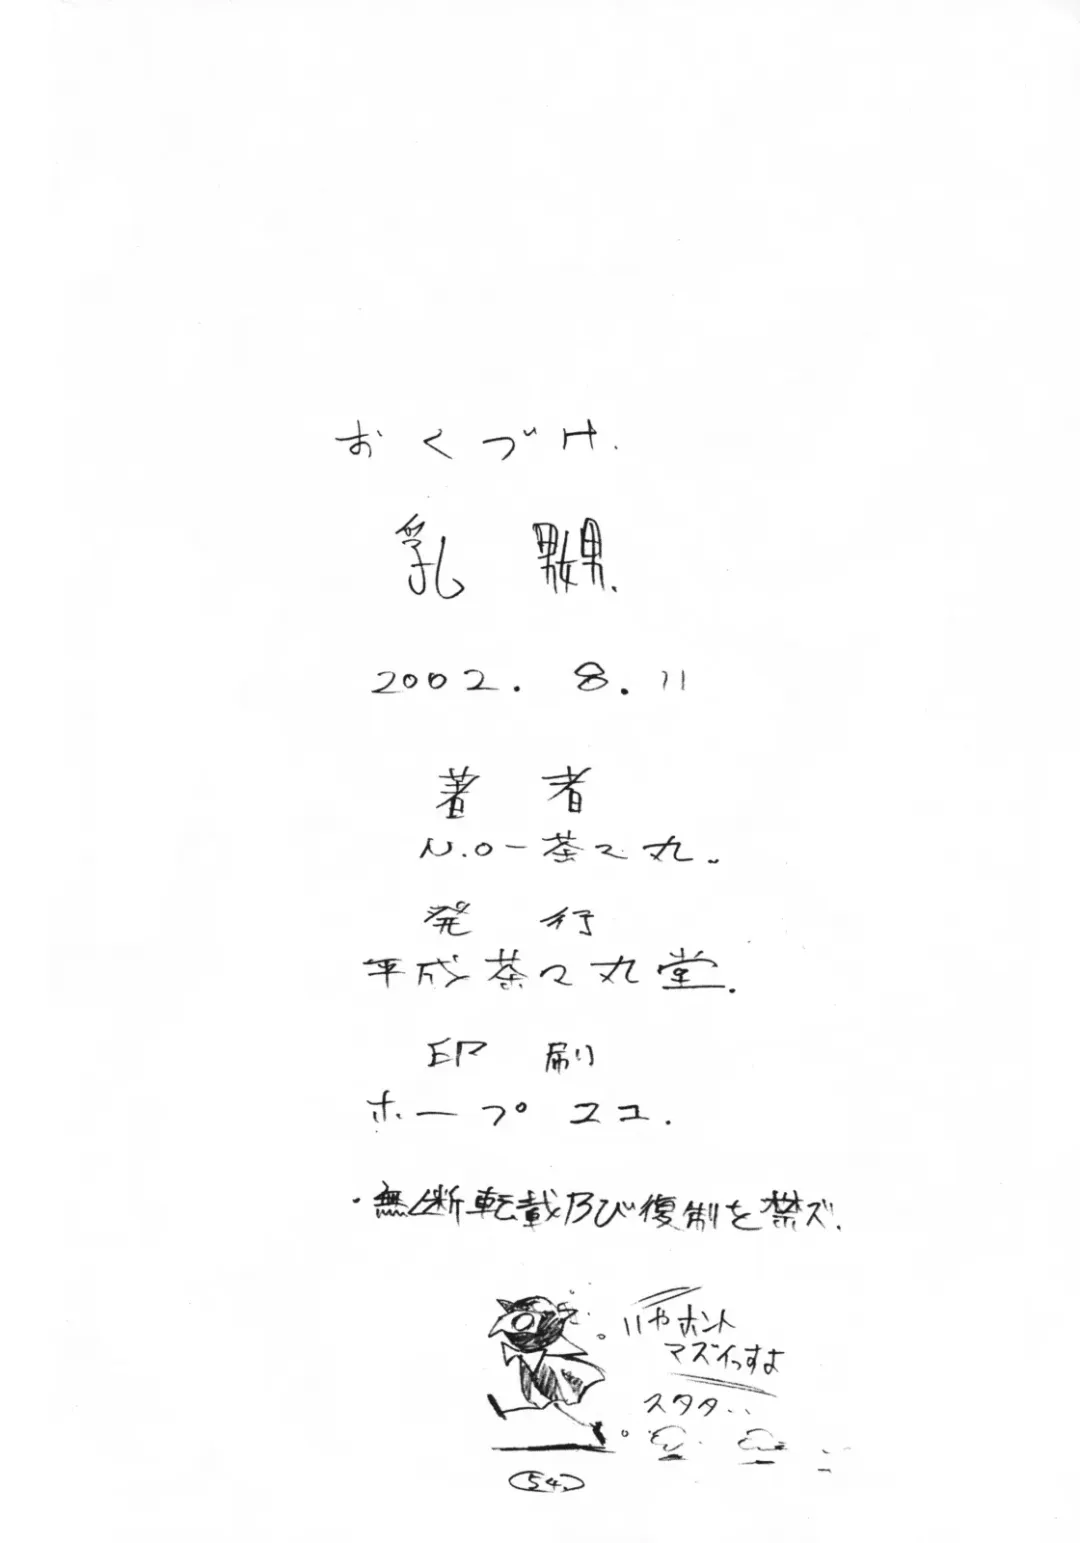 おくづけ.
乳 嬲.
2002. 8. 11
著 者
N.O-茶々丸.
発 行
平成茶々丸堂.
印 刷
ホープ ユニ.
・無断転載及び復制を禁ズ.
いやホント
マズイっすよ
スタタ..
54